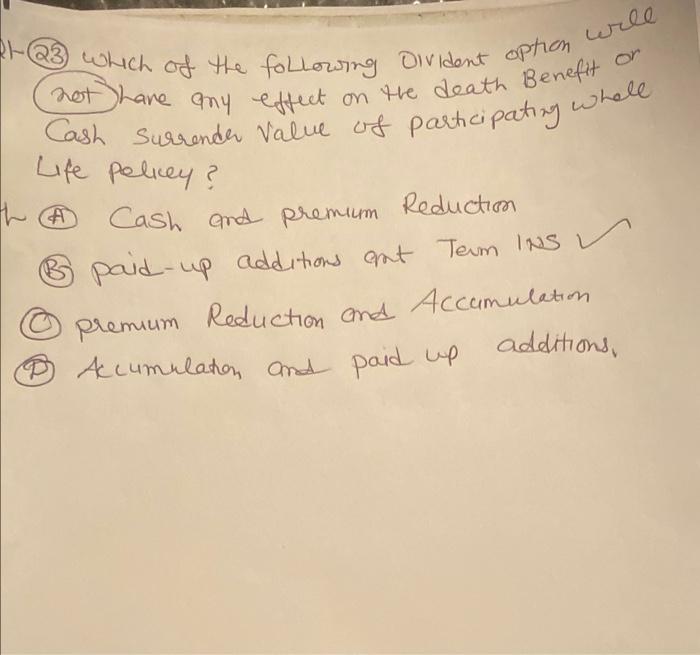 (23) which of the following Divident option will
not have any effect on the death Benefit or
Cash Surrender Value of participating whole
Life policy?
(A) Cash and premium Reduction
(B) paid-up additions ant Term INS ✓
(C) premium Reduction and Accumulation
(D) Accumulation and paid up additions.